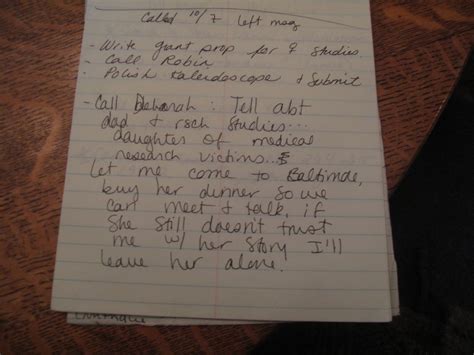 Called 10/7 left msg
- Write grant prop for 9 studies.
- Call Robin
- Polish Kaleidoscope + Submit
- Call Deborah : Tell abt
dad + rsch studies...
daughter of medical
research victims...
Let me come to Baltimore,
buy her dinner so we
can meet + talk, if
She still doesn't trust
me w/ her story I'll
leave her alone.